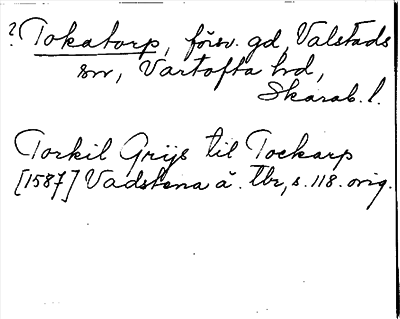 ? Tokatorp, försv. gd, Valstads
sn, Vartofta hd,
Skarab. l.
Torkil Grijs til Tockarp
[1587] Vadstena ä. tbr, s. 118. orig.